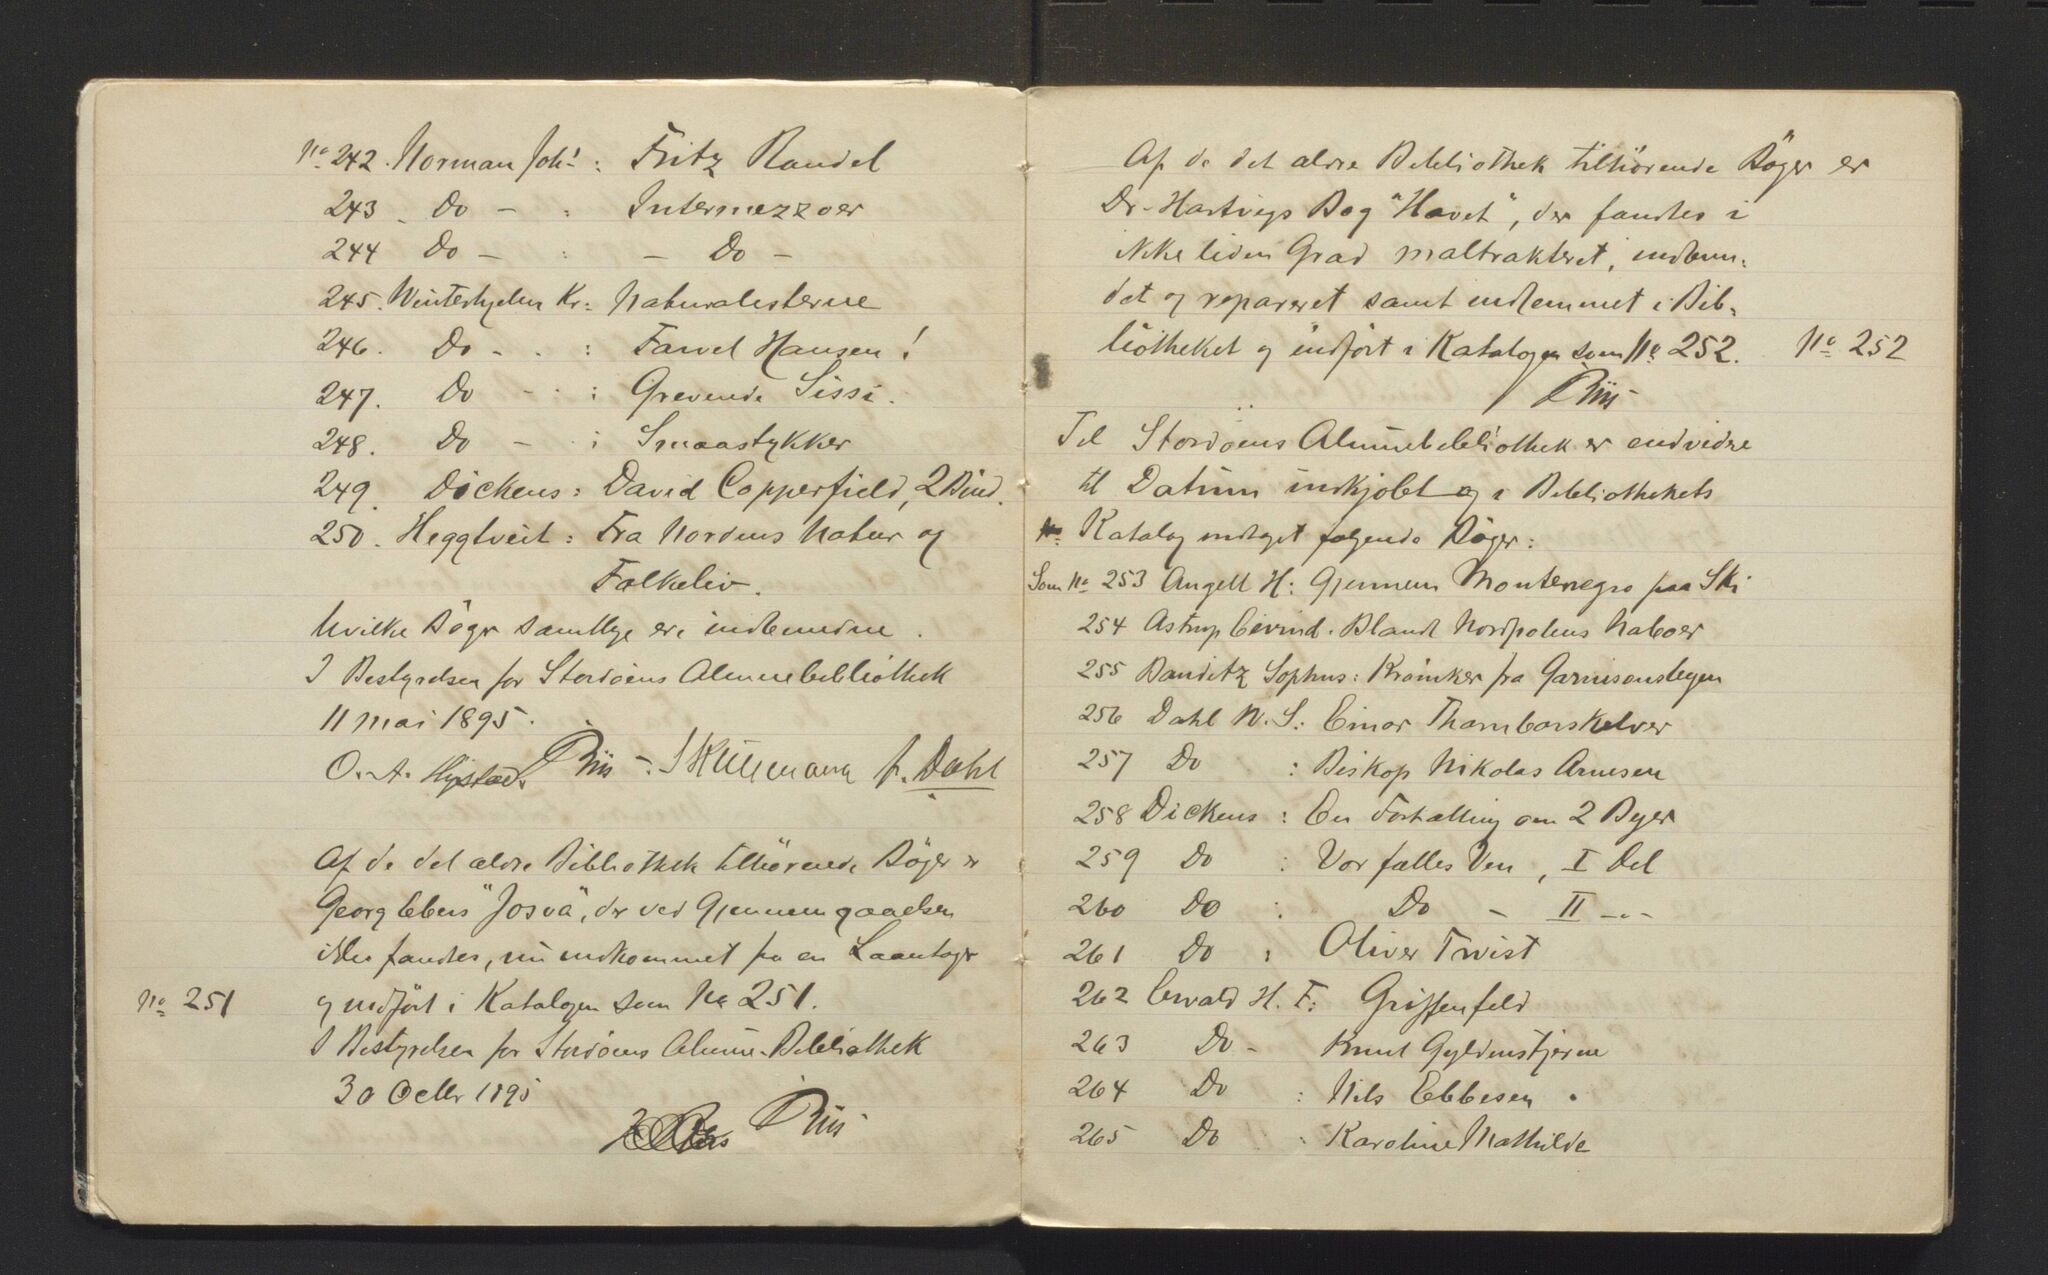 No 242. Norman Joh: : Fritz Randel
243 - Do - : Intermezzoer
244 Do - : - Do -
245. Winterhjelm Kr: Naturalisterne
246. Do - . : Farvel Hansen!
247. Do - . : Grevende Sissi.
248. Do - : Smaastykker
249. Dickens: David Copperfield, 2 Bind.
250. Heggtveit: Fra Nordens Natur og
Folkeliv.
hvilke Böger samtlige ere indbundne.
I Bestyrelsen for Stordöens Almuebibliothek
11 mai 1895.
O. A. Riis S Kullmann f. Dahl
Af de det ældre Bibliothek tilhörende Böger er
Georg Ebers "Josva", der ved Gjennemgaaelsen
ikke fandtes, nu indkommet fra en Laantager
No 251 og indfört i Katalogen som No 251.
I Bestyrelsen for Stordöens Almue-Bibliothek
30 Octbr 1895
Riis
Af de det ældre Bibliothek tilhörende Böger er
Dr. Hartvigs Bog "Havet", der fandtes i
ikke liden Grad maltrakteret, indbun-
det og repareret samt indlemmet i Bib-
liotheket og indfört i Katalogen som No 252. No 252
Riis
Til Stordöens Almuebibliothek er endvidre
til Datum indkjöbt og i Bibliothekets
Katalog indtaget følgende Böger:
Som No 253 Angell H: Gjennem Montenegro paa Ski
254 Astrup Eivind. Blandt Nordpolens Naboer
255 Bauditz Sophus: Krøniker fra Garnisonsbyen
256 Dahl W. S: Einar Thambarskelver
257 Do : Biskop Nikolas Arnesen
258 Dickens : En Fortælling om 2 Byer
259 Do : Vor fælles Ven, I Del
260 Do : Do - II -"-
261 Do : Oliver Twist
262 Ewald H. F: Griffenfeld
263 Do - Knut Gyldenstjerne
264 Do : Nils Ebbesen .
265 Do : Karoline Mathilde